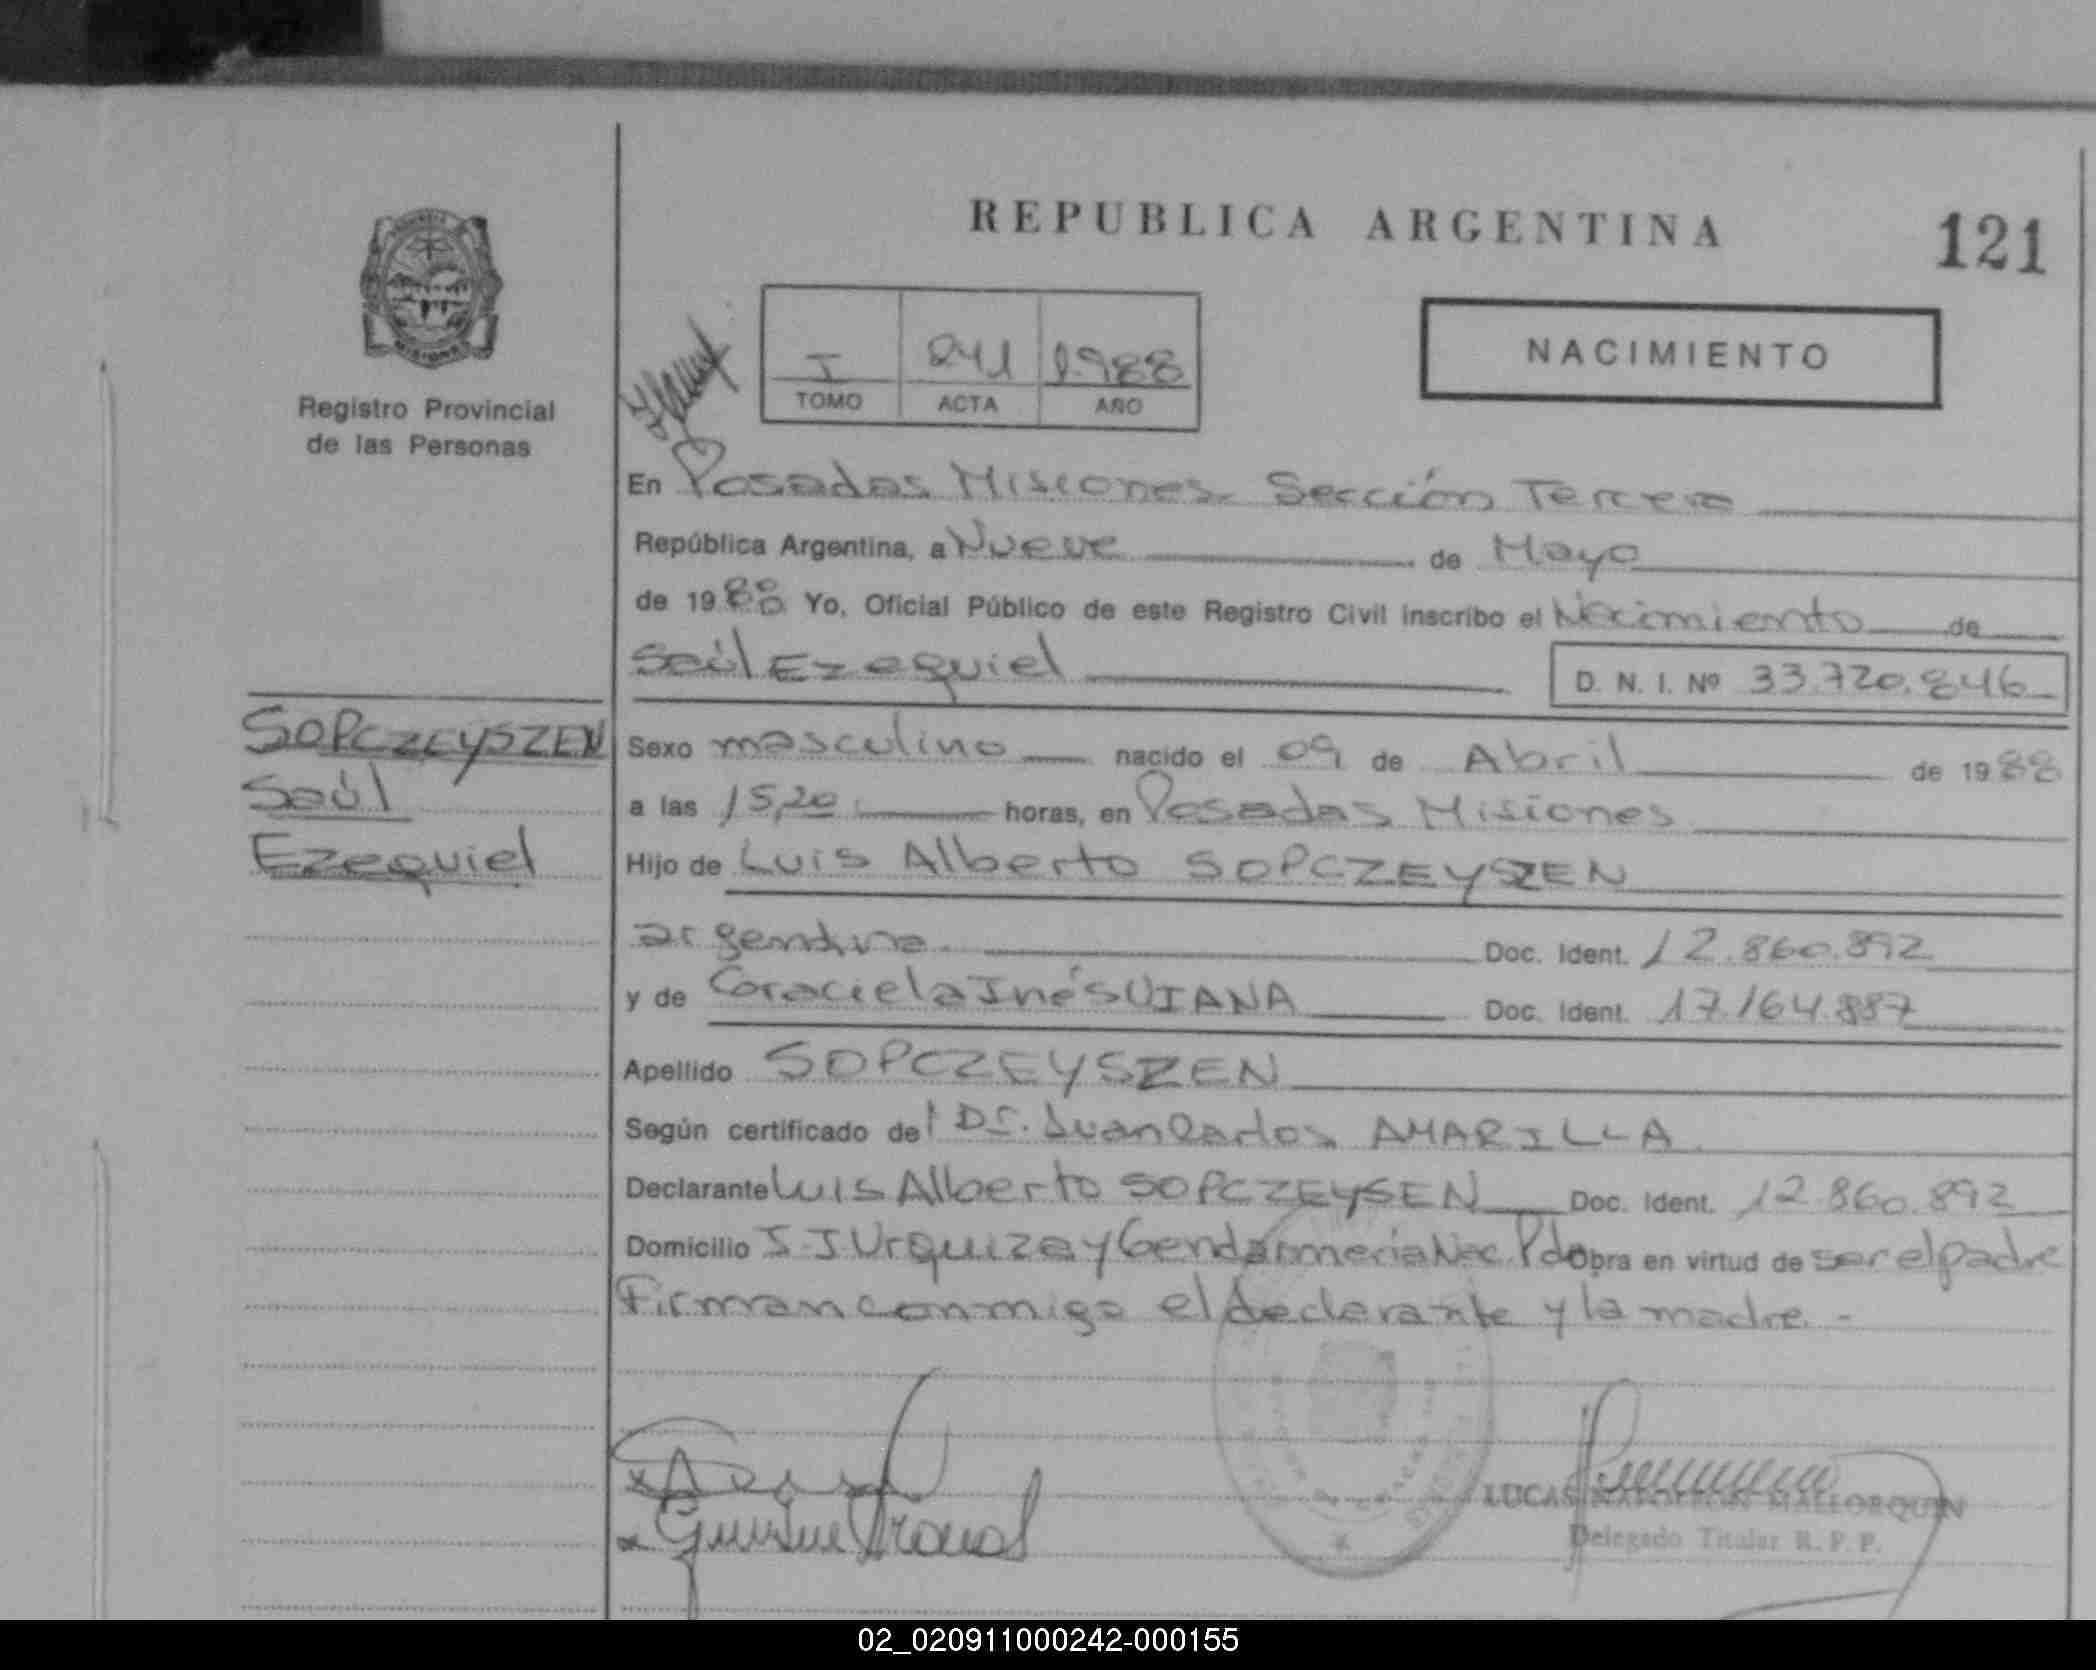 REPUBLICA ARGENTINA
121
MISIONES
Registro Provincial
de las Personas
I 241 1988
TOMO ACTA AÑO
NACIMIENTO
En Posadas Misiones Sección Tercera
República Argentina, a Nueve de Mayo
de 1988 Yo, Oficial Público de este Registro Civil inscribo el Nacimiento de
Saúl Ezequiel D. N. I. Nº 33.720.846
SOPCZEYSZEN
Saúl
Ezequiel
Sexo masculino nacido el 09 de Abril de 1988
a las 15,20 horas, en Posadas Misiones
Hijo de Luis Alberto SOPCZEYSZEN
argentina Doc. Ident. 12.860.892
y de Graciela Inés VIANA Doc. Ident. 17.164.887
Apellido SOPCZEYSZEN
Según certificado del Dr. Juan Carlos AMARILLA
Declarante Luis Alberto SOPCZEYSEN Doc. Ident. 12.860.892
Domicilio J.J Urquiza y Gendarmeria Nac. Pdas Obra en virtud de ser el padre
Firman conmigo el declarante y la madre. -
LUCAS NAPOLEON MALLORQUIN
Delegado Titular R. P. P.
02_020911000242-000155